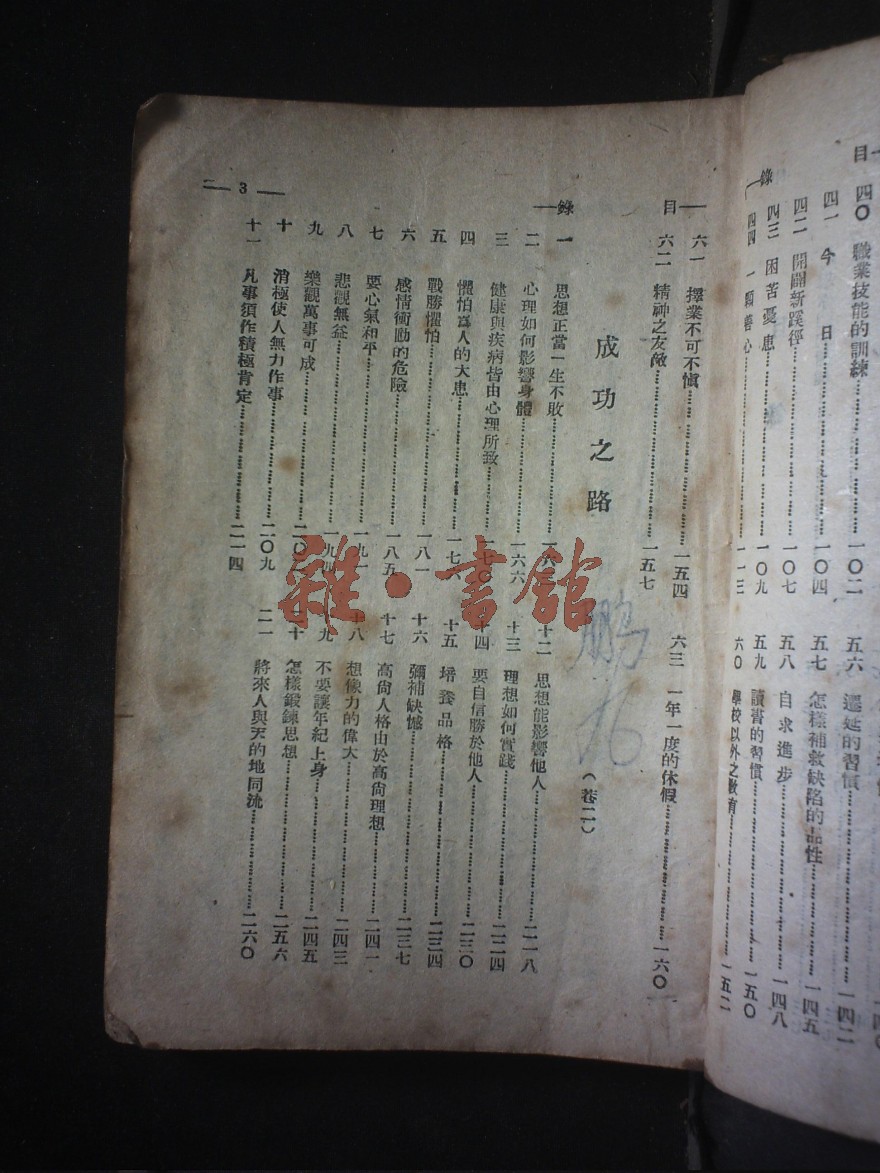 目
錄
四〇 職業技能的訓練 一〇二
四一 今日 一〇四
四二 開闢新蹊徑 一〇七
四三 困苦憂患 一〇九
四四 一顆善心 一一三
五六 遷延的習慣 一四二
五七 怎樣補救缺陷的品性 一四五
五八 自求進步 一四八
五九 讀書的習慣 一五〇
六〇 學校以外之教育 一五二
目
錄
六一 擇業不可不慎 一五四
六二 精神之友敵 一五七
六三 一年一度的休假 一六〇
成功之路
(卷二)
鵬九
一 思想正當一生不敗
二 心理如何影響身體 一六六
三 健康與疾病皆由心理所致 一七〇
四 懼怕爲人的大患 一七六
五 戰勝懼怕 一八一
六 感情衝動的危險 一八五
七 要心氣和平 一九一
八 悲觀無益 一九四
九 樂觀萬事可成
十 消極使人無力作事 二〇九
十一 凡事須作積極肯定 二一四
十二 思想能影響他人 二一八
十三 理想如何實踐 二二四
十四 要自信勝於他人 二三〇
十五 培養品格 二三四
十六 彌補缺憾 二三七
十七 高尚人格由於高尚理想 二四一
十八 想像力的偉大 二四三
十九 不要讓年紀上身 二四五
二十 怎樣鍛鍊思想 二五六
二一 將來人與天的地同流 二六〇
3
雜·書館